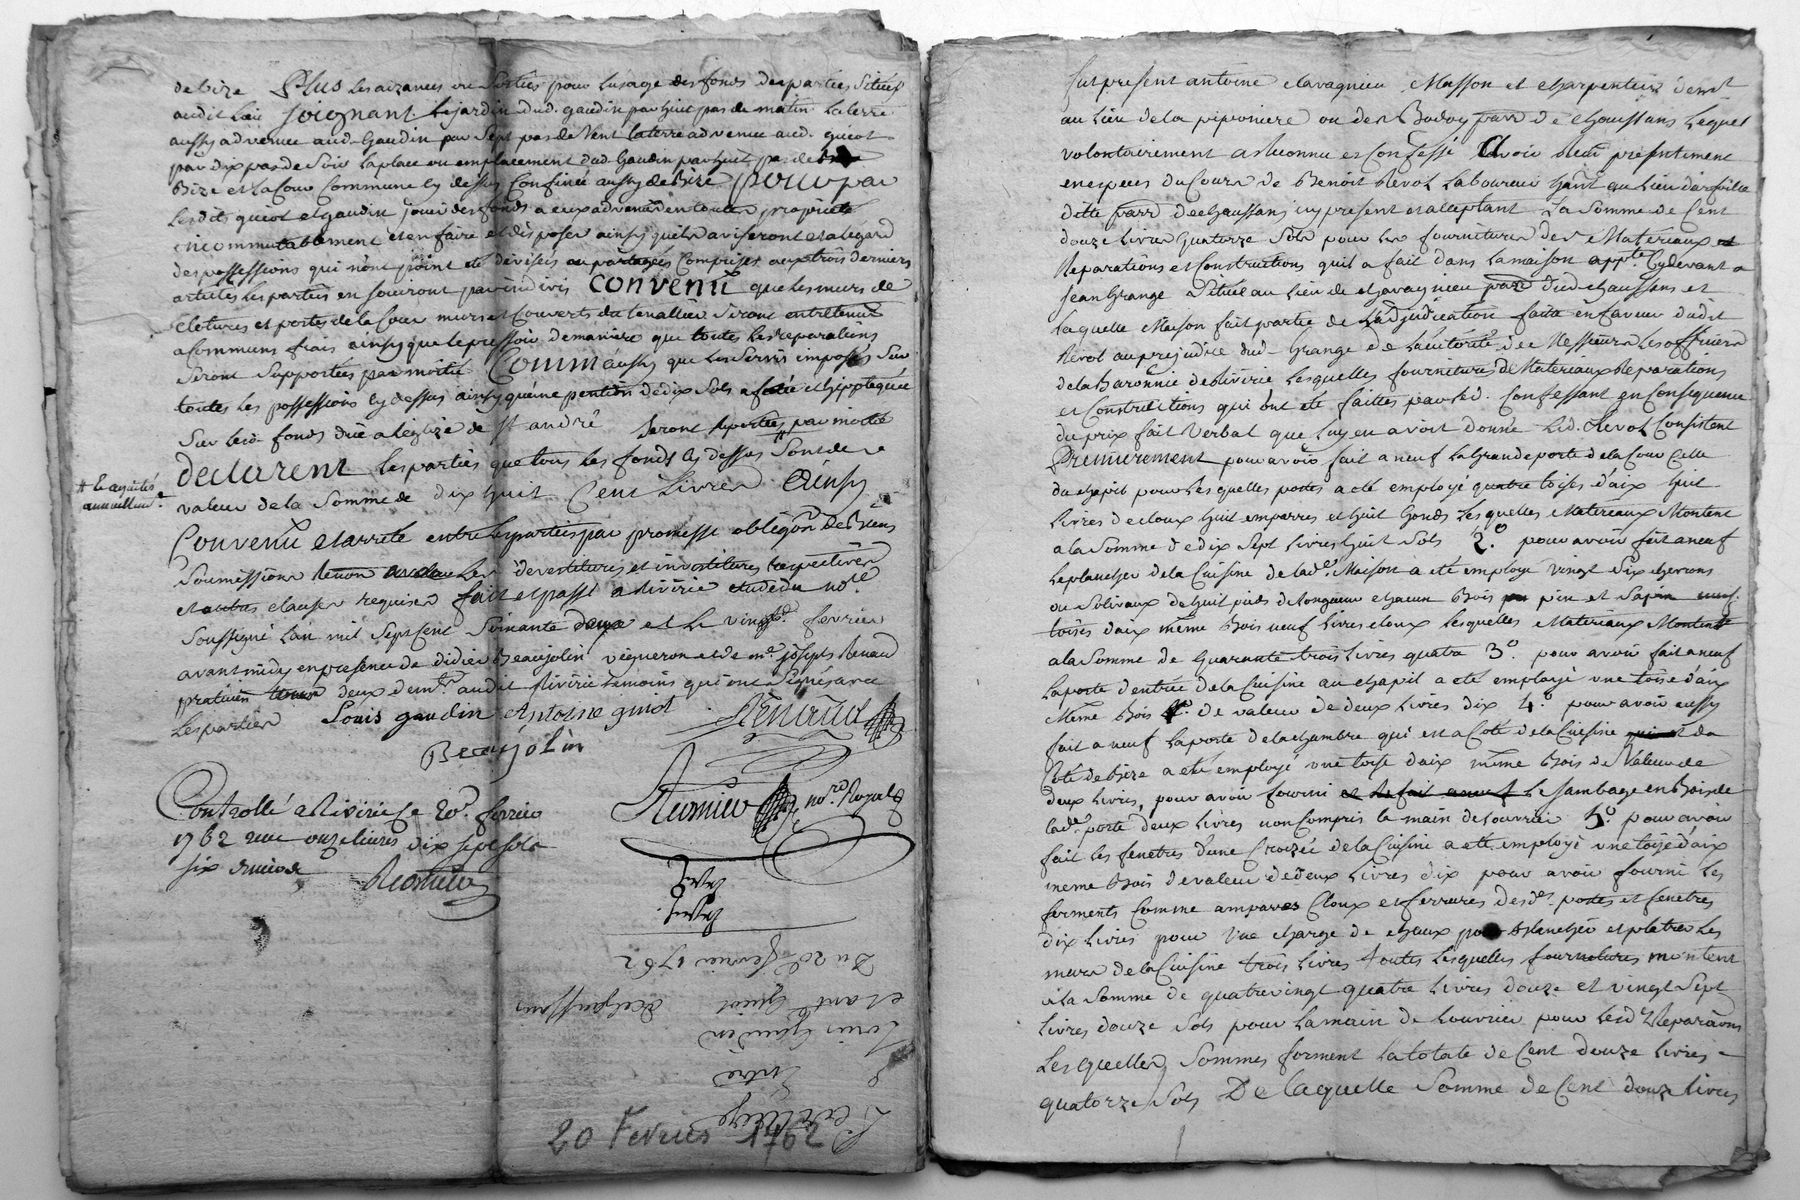 de bize Plus les aizances ou sorties pour lusage des fonds des parties situés
audit lieu joignant le jardin dud. gaudin par huit pas de matin la terre
aussy advenue aud. Gaudin par sept pas de vent la terre advenue aud. guiot
par dix pas de soir la place ou emplacement dud Gaudin par huit pas de
Bize et la Cour Commune cy dessus Confinée aussy de Bize pour par
lesdits guiot et gaudin jouir des fonds a eux advenu en toutte propriété
incommutablement et en faire et disposer ainsy quils aviseront et a legard
des possessions qui n'ont point eté devisés ou partagés comprises aux trois derniers
articles les parties en jouiront par indivis Convenu que les murs de
cloturés et portes de la Cour murs et Couverts du tenallier seront entretenus
a Communs frais ainsy que le pressoir de manière que toutes les reparations
seront supportées par moitié Comm aussy que les servis imposés sur
toutes les possessions cy dessus ainsy qu'une pention de dix sols et hippotequée
sur lesd. fonds düe a leglize de St andré seront suportées par moitié
# le acquités
annuellemt.
declarent les parties que tous les fonds cy dessus sont de
valeur de la somme de dix huit Cent Livres Ainsy
Convenu et arreté entre les parties par promesse obligaon de biens
soumissions renon clauses devestitures et investitures respectives
et autres clauses requises fait et passé a Rivirie etude du nore
soussigné lan mil sept cent soixante deux et le vingte. fevrier
avant midy en presence de didier Beaujolin vigneron et de me. joseph Renaud
praticien deux demts. audit Rivirie temoins qui ont signés avec
les parties Louis gaudin Antoine guiot Renaud
Beaujolin
Reomieu nore. Royal
Controllé a Rivirie ce 20e. fevrier
1762 reçu onze livres dix sept sols
six deniers
Reomieu
Du 20e. fevrier 1762
et ant. Guiot dechaussans
Louis Gaudin
Entre
20 Fevrier 1762
fut present antoine clavagnieu Masson et charpentier demt.
au lieu de la pipioniere ou des Bovoy parr. de chaussans lequel
volontairement a reconnu et Confessé avoir receu presentement
en especes du Cours de Benoit Revol Laboureur habt. au lieu
ditte parr. de chaussans icy present et acceptant la somme de Cent
douze livres quatorze sols pour les fournitures des Materiaux
Reparations et Constructions quil a fait dans la maison appte. cy devant a
jean Grange situee au lieu de chavagnieu parr. dud chaussans et
laquelle Maison fait partie de l'adjudication faite en faveur dudit
Revol au prejudice dud Grange de lautorité de Messieurs les officiers
de la Baronnie de Rivirie lesquelles fournitures de Materiaux Reparations
et Constructions qui ont eté faittes par led. Confessant en Consequence
du prix fait verbal que luy en avoit donné led. Revol Consistent
Premierement pour avoir fait a neuf la grande porte de la Cour Celle
du chapit pour lesquelles portes a eté employé quatre toises d'aix huit
livres de cloux huit emparres et huit Gonds lesquelles Materiaux Montent
a la somme de dix sept livres huit sols 2.o pour avoir fait a neuf
le plancher de la Cuisine de lade. Maison a eté employé vingt six chevrons
ou solivaux de huit pieds de longueur chacun Bois pin et sapin neuf
toises d'aix même Bois neuf livres cloux lesquelles Materiaux Montent
a la somme de quarante trois livres quatre 3o. pour avoir fait a neuf
la porte d'entrée de la Cuisine au chapit a eté employé une toise d'aix
Même Bois de valeur de deux livres dix 4.o pour avoir aussy
fait a neuf la porte de la chambre qui est a Coté de la Cuisine du
Coté de bize a eté employé une toise d'aix même Bois de Valeur de
deux livres, pour avoir fourni le jambage en Bois de
lade. porte deux livres non Compris la main de louvrier 5o pour avoir
fait les fenetres d'une Croizée de la Cuisine a eté employé une toise d'aix
meme Bois de valeur de deux livres dix pour avoir fourni les
ferments comme amparres Cloux et ferrures desde. portes et fenetres
dix livres pour une charge de chaux pour blanchir et platrer les
murs de la Cuisine trois livres toutes lesquelles fournitures montent
a la somme de quatre vingt quatre livres douze et vingt sept
livres douze sols pour la main de louvrier pour lesde. Reparaons
Lesquelles sommes forment la totale de Cent douze livres
quatorze sols De laquelle somme de Cent douze livres